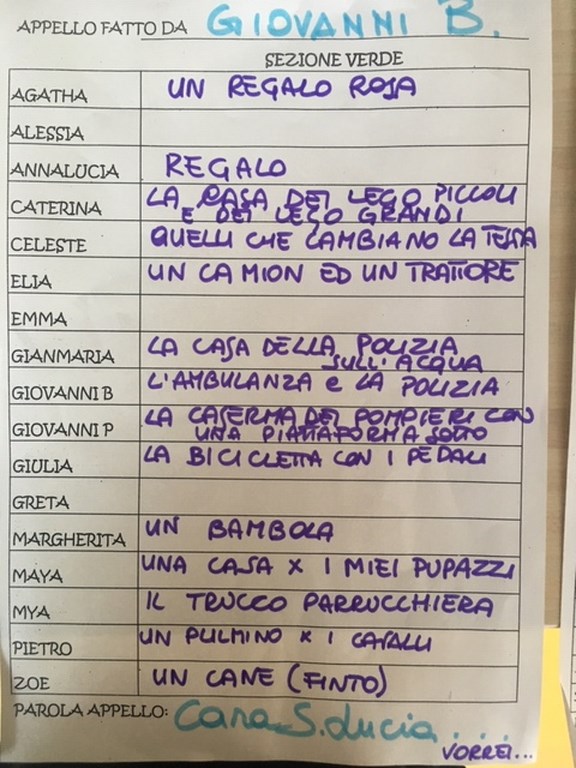 APPELLO FATTO DA GIOVANNI B.
SEZIONE VERDE
AGATHA UN REGALO ROSA
ALESSIA
ANNALUCIA REGALO
CATERINA LA CASA DEI LEGO PICCOLI
E DEI LEGO GRANDI
CELESTE QUELLI CHE CAMBIANO LA TESTA
ELIA UN CAMION ED UN TRATTORE
EMMA
GIANMARIA LA CASA DELLA POLIZIA
SULL'ACQUA
GIOVANNI B L'AMBULANZA e LA POLIZIA
GIOVANNI P LA CASERMA DEI POMPIERI CON
UNA PIATTAFORMA SOTTO
GIULIA LA BICICLETTA CON I PEDALI
GRETA
MARGHERITA UN BAMBOLA
MAYA UNA CASA X I MIEI PUPAZZI
MYA IL TRUCCO PARRUCCHIERA
PIETRO UN PULMINO X I CAVALLI
ZOE UN CANE (FINTO)
PAROLA APPELLO: Cara S. Lucia....
VORREI...